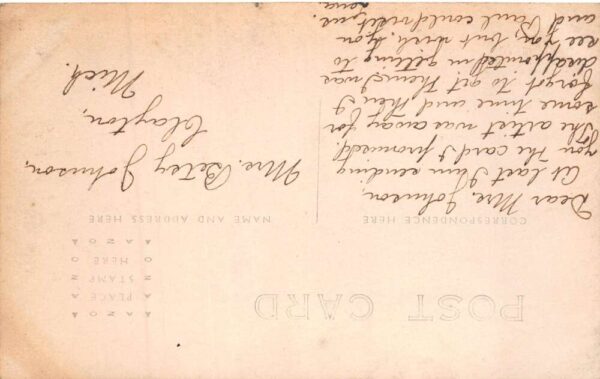 POST CARD
CORRESPONDENCE HERE
Dear Mrs. Johnson,
At last I am sending
you the card I promised.
The artist was away for
some time and then I
forgot to get them. I was
disappointed in getting to
see you, but wish you
and Paul could visit me.
NAME AND ADDRESS HERE
PLACE
STAMP
HERE
Mrs. Betsy Johnson,
Clayton,
Mich.